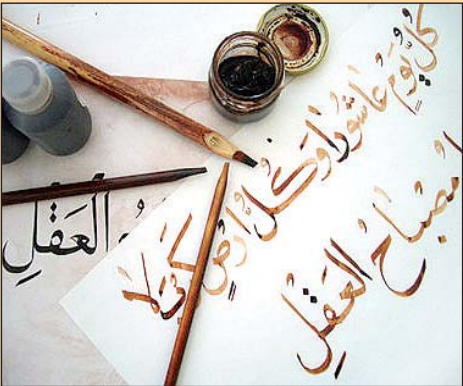 كُلُّ يَومٍ عَاشُورَا وَكُلُّ أرضٍ كَربَلا
مُصْبَاحُ العَقْلِ
العَقْلِ